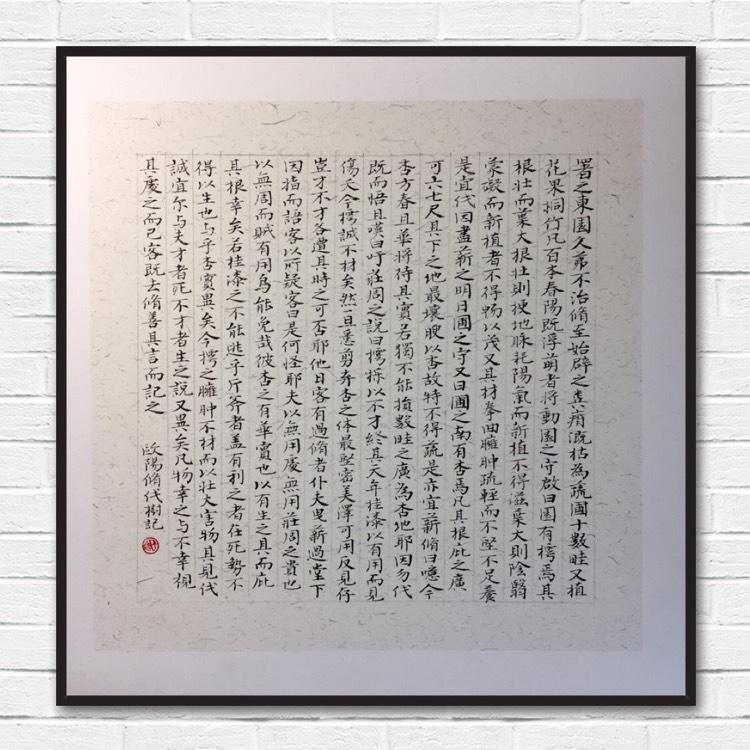 署之東園久茀不治脩至始辟之糞瘠溉枯為蔬圃十數畦又植
花果桐竹凡百本春陽既浮萌者將動園之守啟曰園有樗焉其
根壯而葉大根壯則梗地脉耗陽氣而新植不得滋葉大則陰翳
蒙礙而新植者不得暢以茂又其材拳曲臃肿疏輕而不堅不足養
是宜伐因盡薪之明日圃之守又曰圃之南有杏焉凡其根庇之廣
可六七尺其下之地最壤腴以杏故特不得蔬是亦宜薪脩曰噫今
杏方春且華將待其實若獨不能損數畦之廣為杏地耶因勿伐
既而悟且嘆曰吁莊周之說曰樗櫟以不才終其天年桂漆以有用而見
傷夭今樗誠不材矣然一旦悉剪弃杏之体最堅密美澤可用反見存
豈才不才各遭其時之可否耶他日客有過脩者仆夫曳薪過堂下
因指而語客以所疑客曰是何怪耶夫以無用處無用莊周之貴也
以無用而賊有用烏能免哉彼杏之有華實也以有生之具而庇
其根幸矣若桂漆之不能逃乎斤斧者盖有利之者在死勢不
得以生也与乎杏實異矣今樗之臃肿不材而以壯大害物其見伐
誠宜尔与夫才者死不才者生之說又異矣凡物幸之与不幸視
其處之而已客既去脩善其言而記之 欧陽脩伐樹記